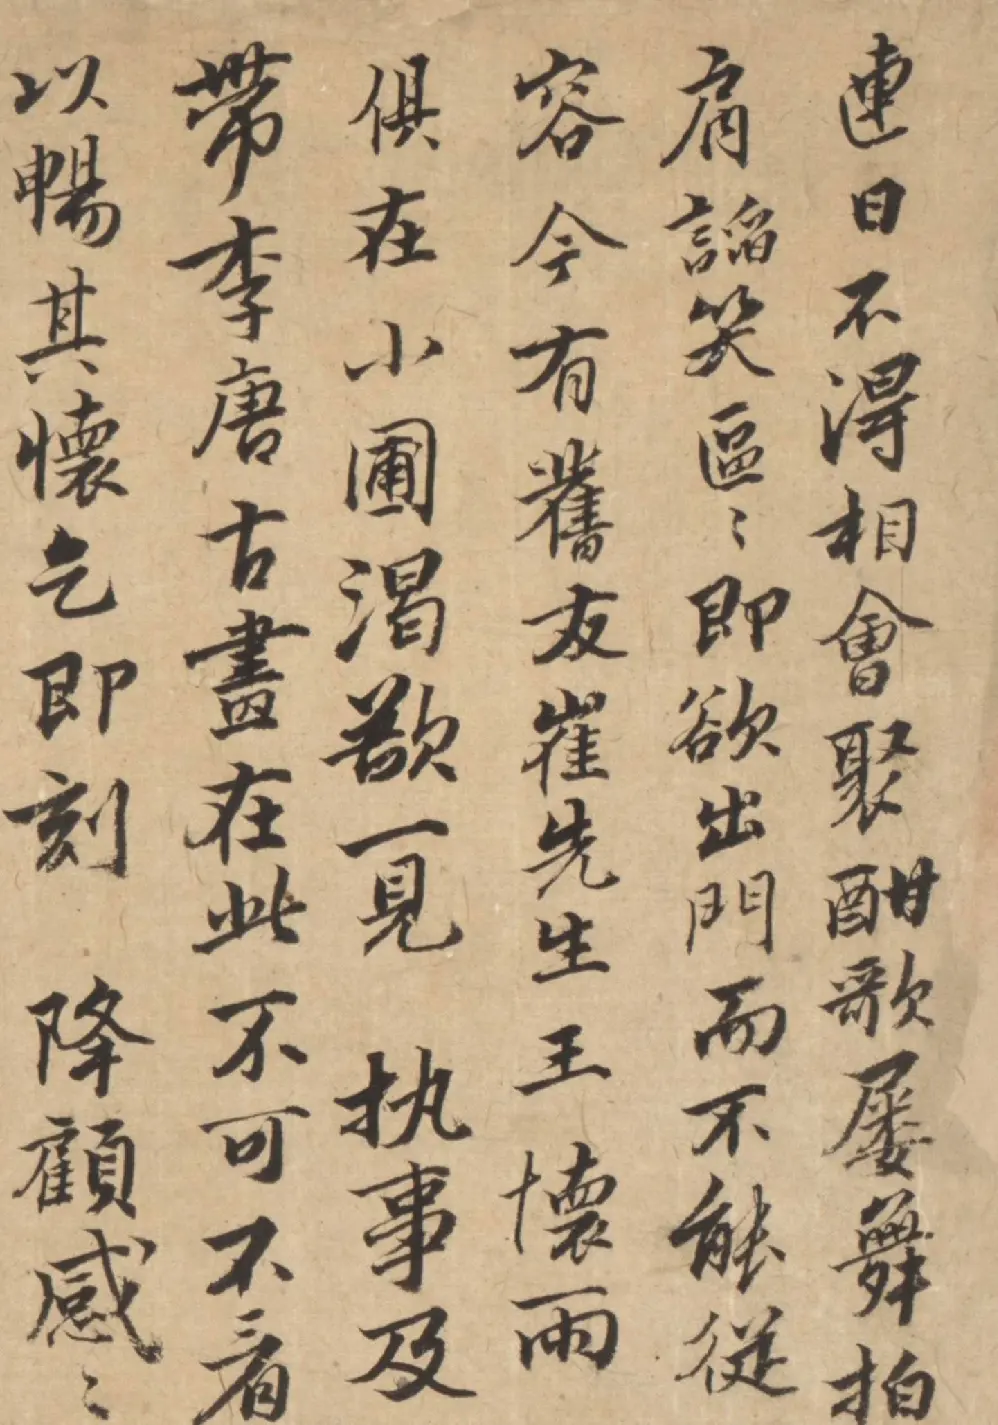 連日不得相會聚酣歌屢舞拍
肩謟笑區〻即欲出門而不能從
容今有舊友崔先生王懷雨
俱在小圃渴欲一見執事及
帶李唐古畫在此不可不看
以暢其懷乞即刻降顧感〻